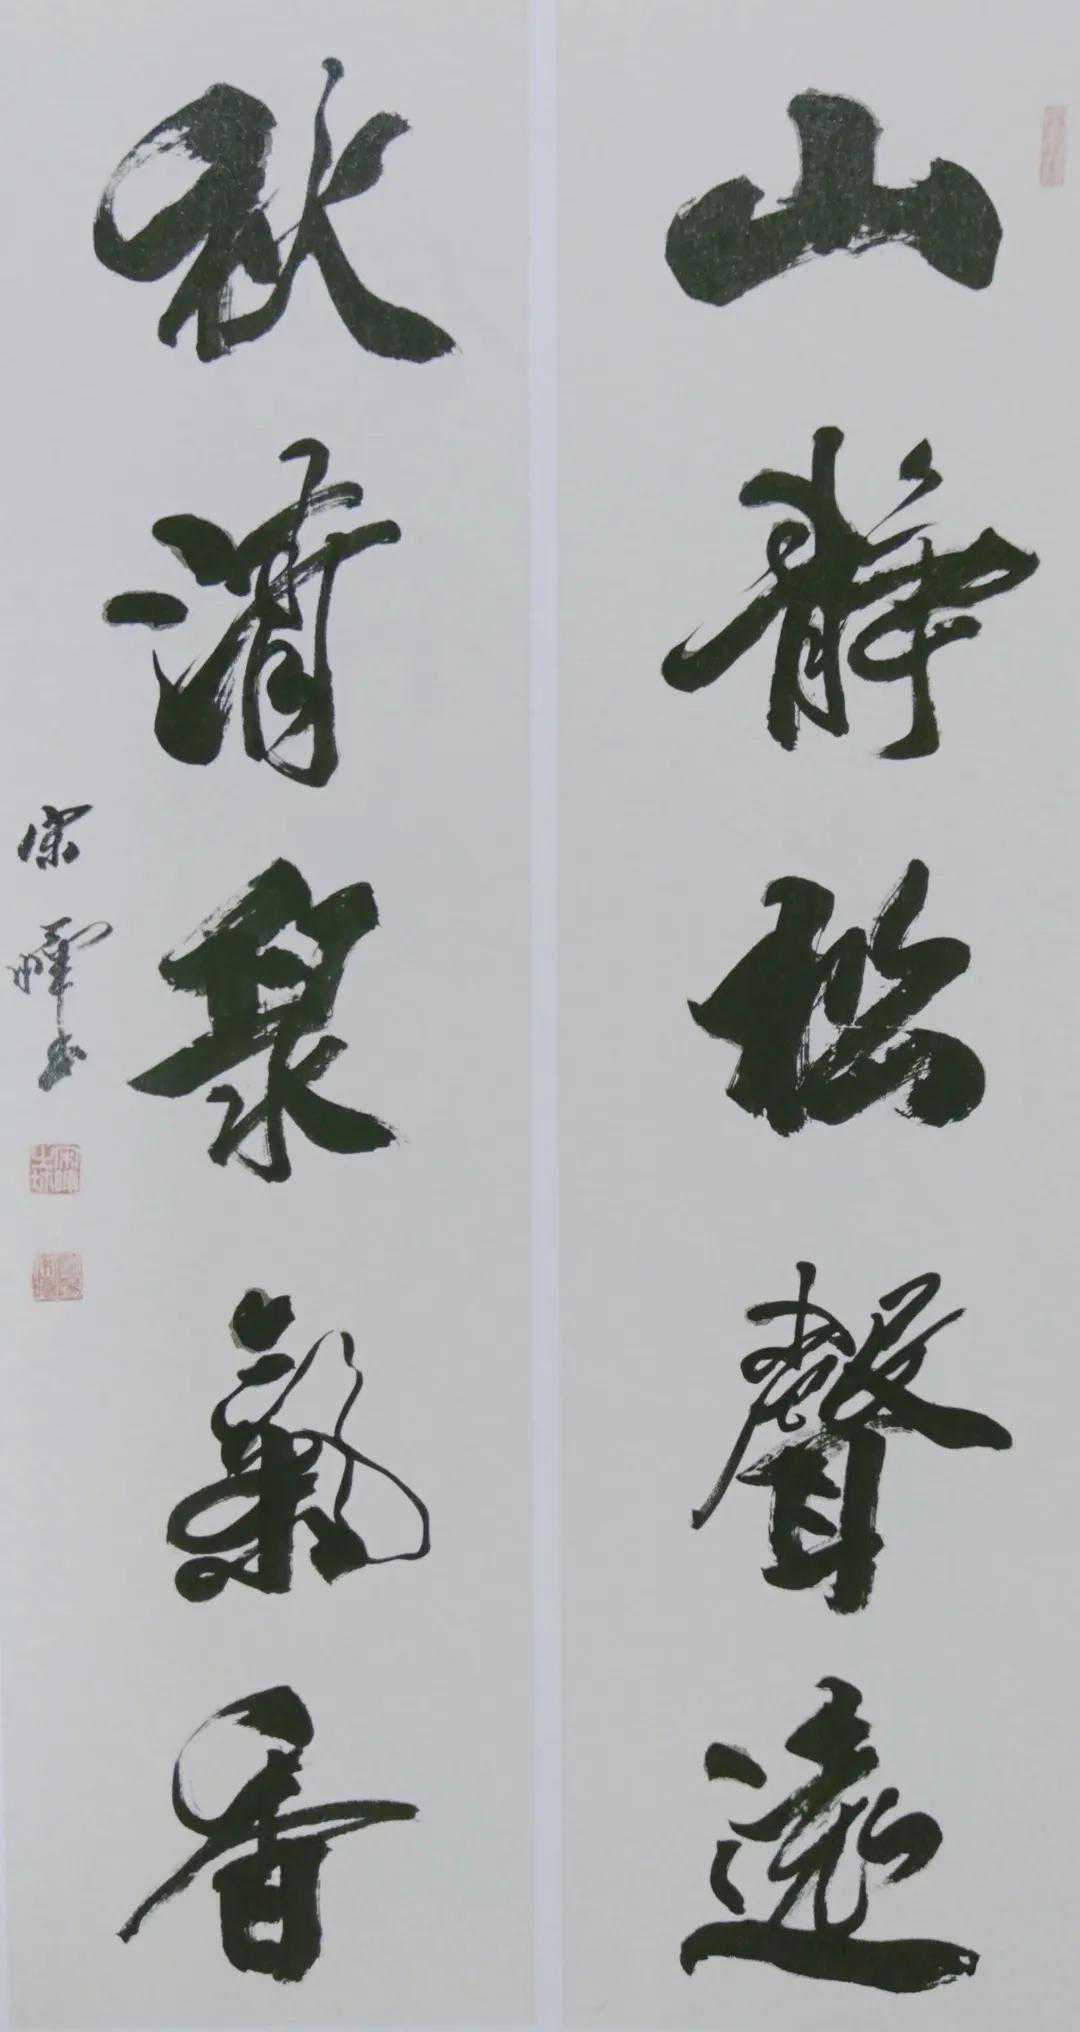 山靜松聲遠
秋清泉氣香
宋暉書